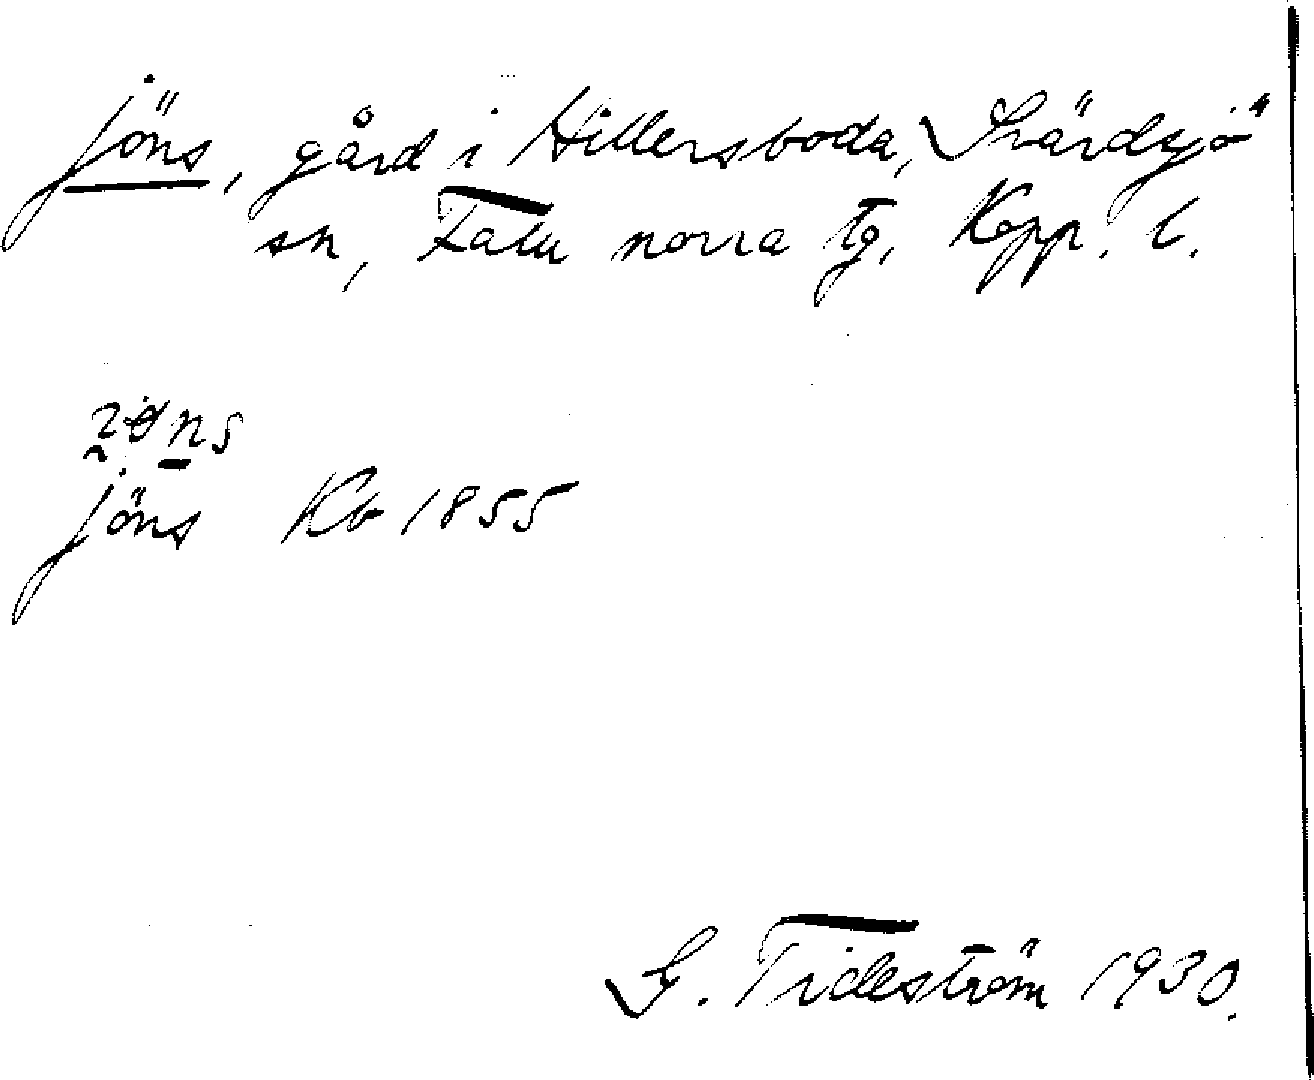 Jöns, gård i Hillersboda, Svärdsjö
sn, Falu norra tg, Kopp. l.
Jöns Kb 1855
G. Tideström 1930.